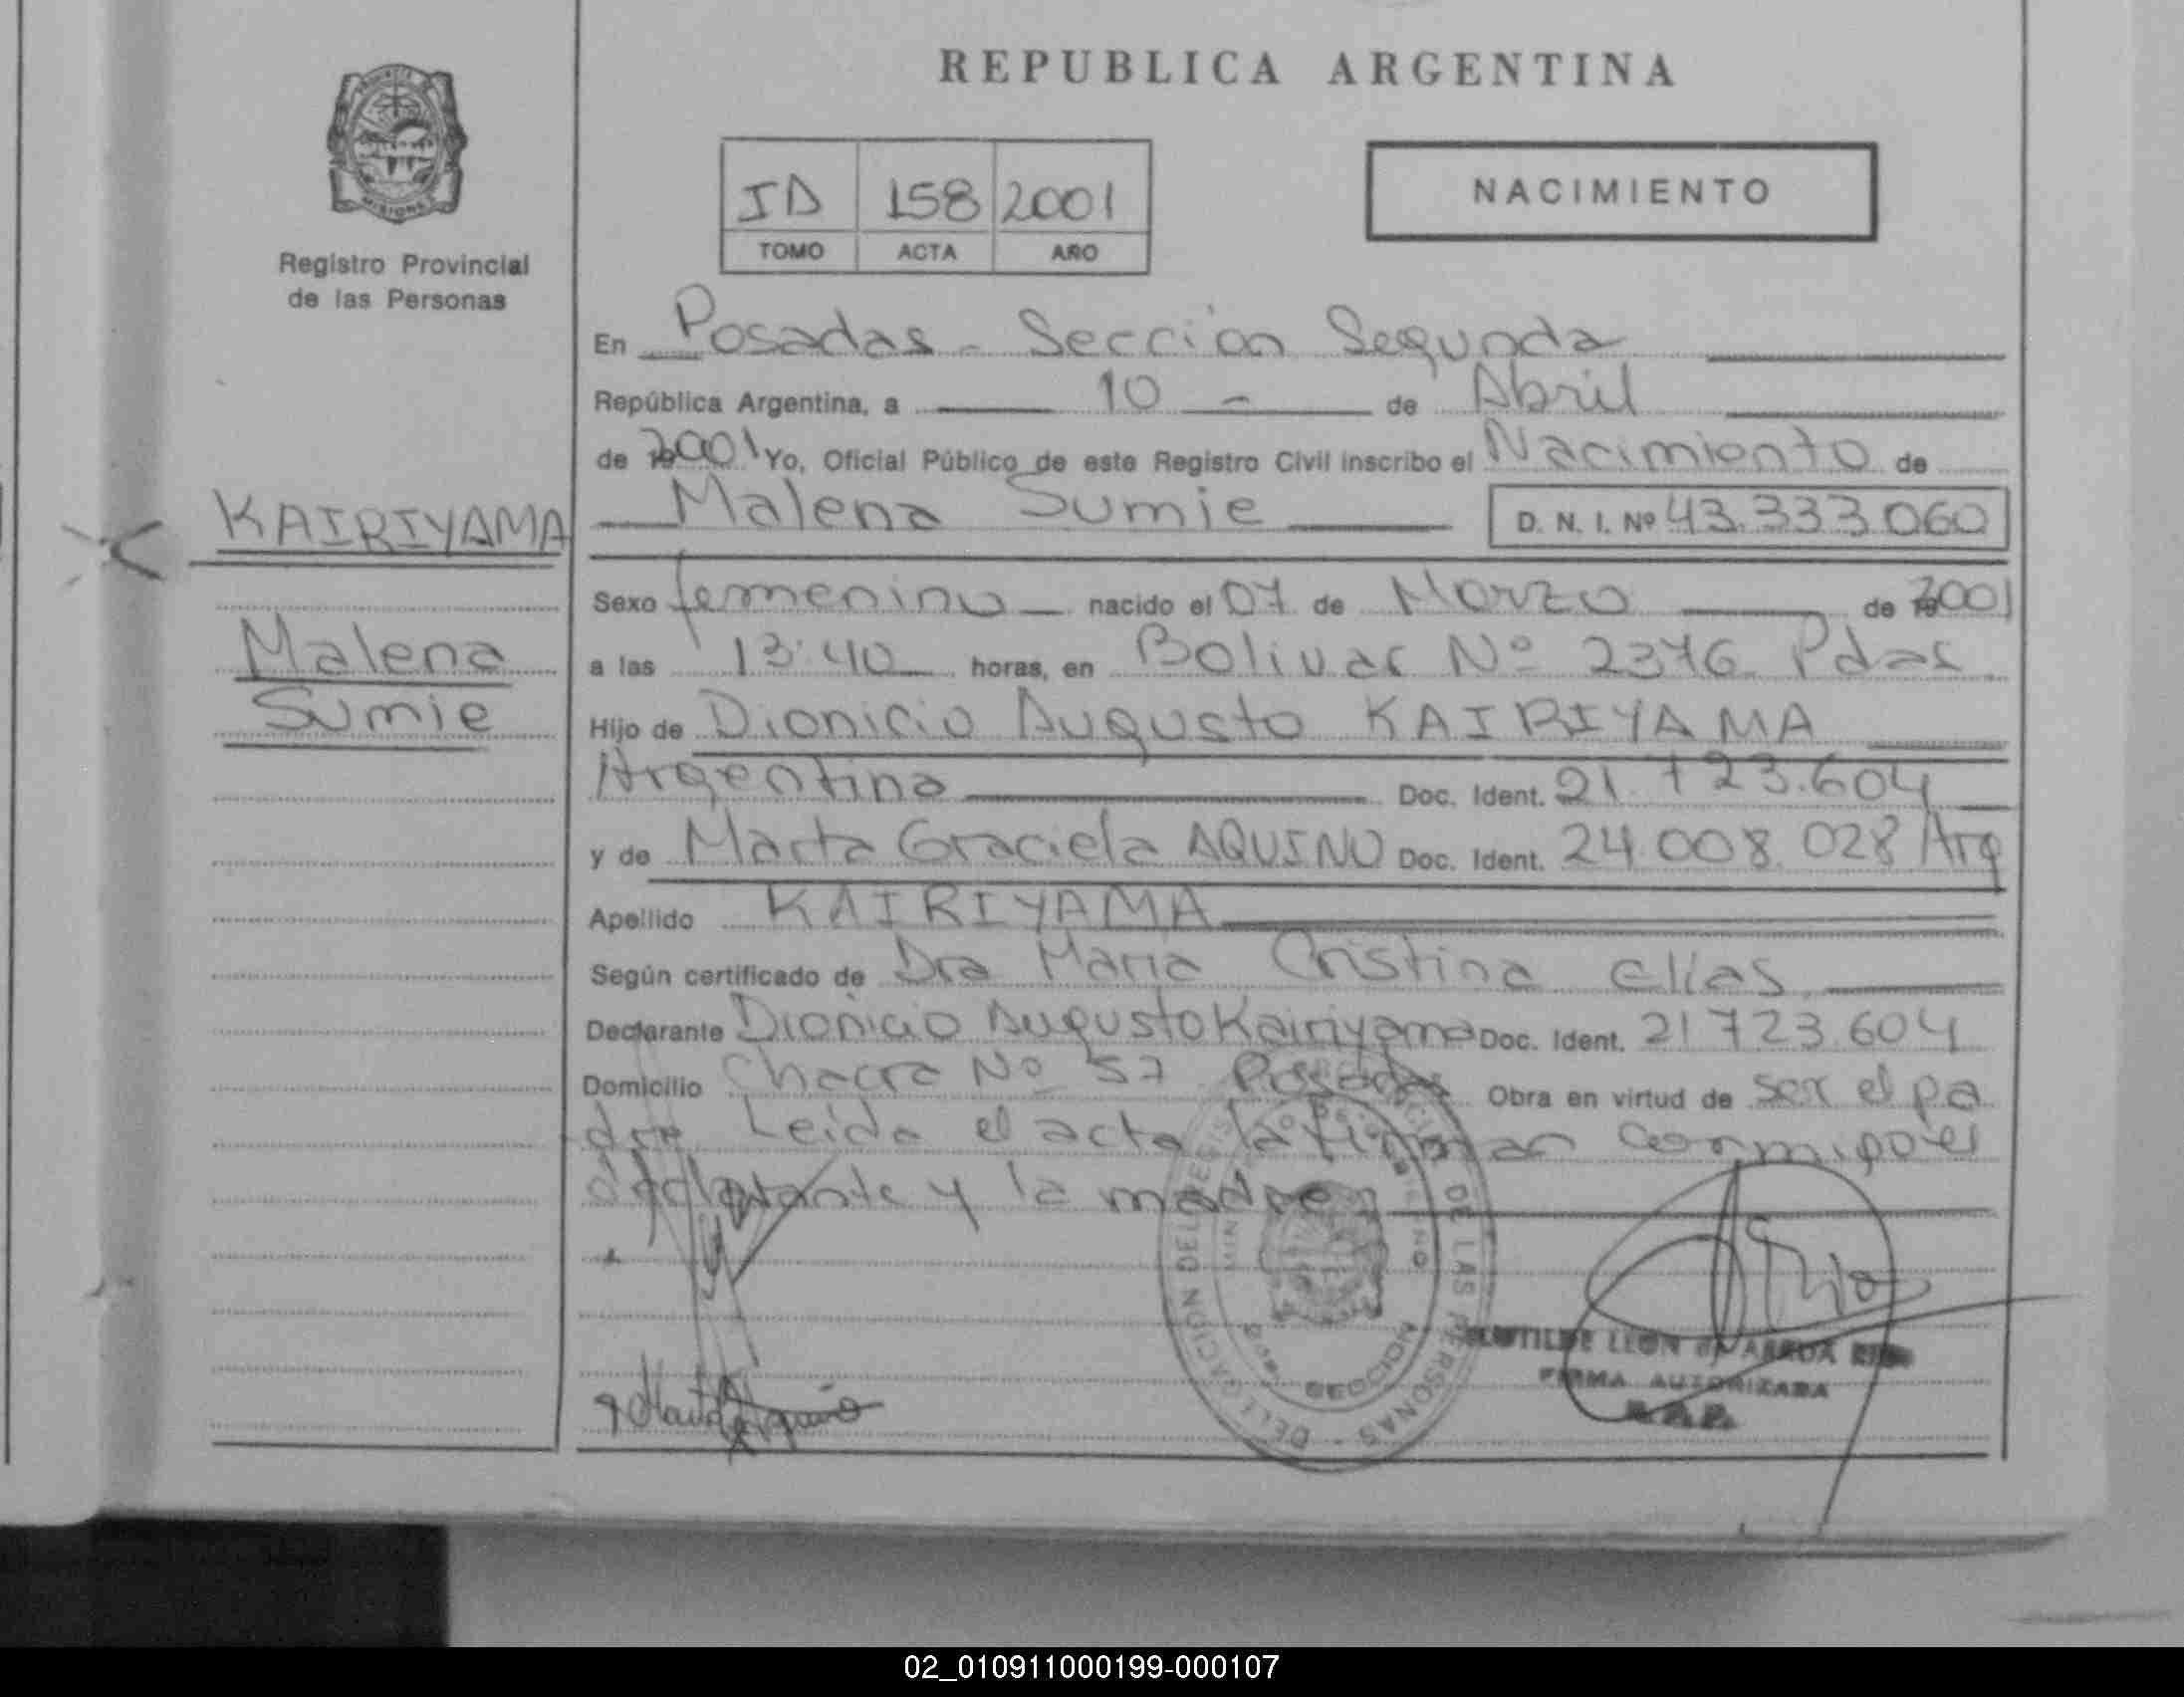 REPUBLICA ARGENTINA
MISIONES
Registro Provincial
de las Personas
ID 158 2001
TOMO ACTA AÑO
NACIMIENTO
En Posadas - Sección Segunda
República Argentina, a 10 - de Abril
de 2001 Yo, Oficial Público de este Registro Civil inscribo el Nacimiento de
Malena Sumie D. N. I. Nº 43.333.060
KAIRIYAMA
Malena
Sumie
Sexo femenino nacido el 07 de Marzo de 2001
a las 13:40 horas, en Bolivar Nº 2376 Pdas
Hijo de Dionicio Augusto KAIRIYAMA
Argentina Doc. Ident. 21.723.604
y de Marta Graciela AQUINO Doc. Ident. 24.008.028 Arg
Apellido KAIRIYAMA
Según certificado de Dra Maria Cristina Elias
Declarante Dionicio Augusto Kairiyama Doc. Ident. 21723.604
Domicilio Chacra Nº 57 Posadas Obra en virtud de ser el pa
dre Leida el acta la firman conmigo el
declarante y la madre
DELEGACION DEL DE LAS PERSONAS
LEON
FIRMA AUTORIZADA
02_010911000199-000107